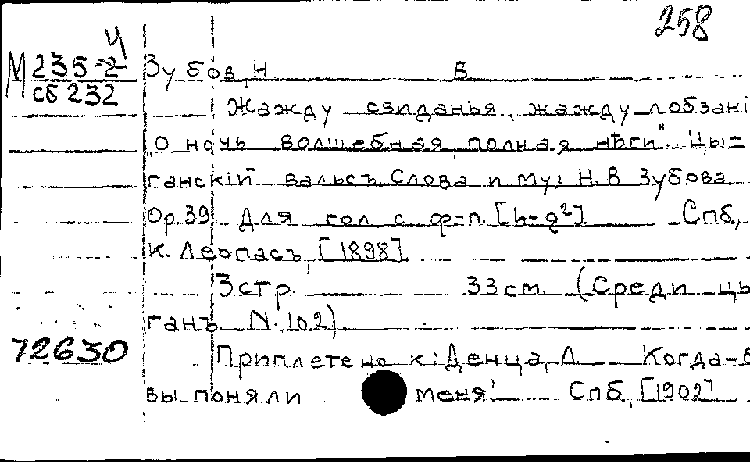 258
М 235-2
4
сб 232
Зубов, Н В
Жажду свиданья, жажду лобзані
"О ночь волшебная, полная нѣги". Цы=
ганскій вальсъ. Слова и муз Н. В Зубова
Ор. 39 Для гол с ф-п. [h-g²] Спб,
К. Леопасъ, [1898]
3 стр. 33 см. (Среди цы
ганъ N. 102)
72630
Приплетено к: Денца, Л Когда-б
вы поняли меня! Спб, [1902]